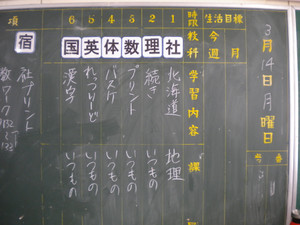 3月14日月曜日
生活目標
今週 月
時限 教科 学習内容 課
1 社 北海道 地理
2 理 続き いつもの
3 数 プリント いつもの
4 体 バスケ いつもの
5 英 れっつりーど いつもの
6 国 漢字 いつもの
項
宿 社プリント
数ワーク